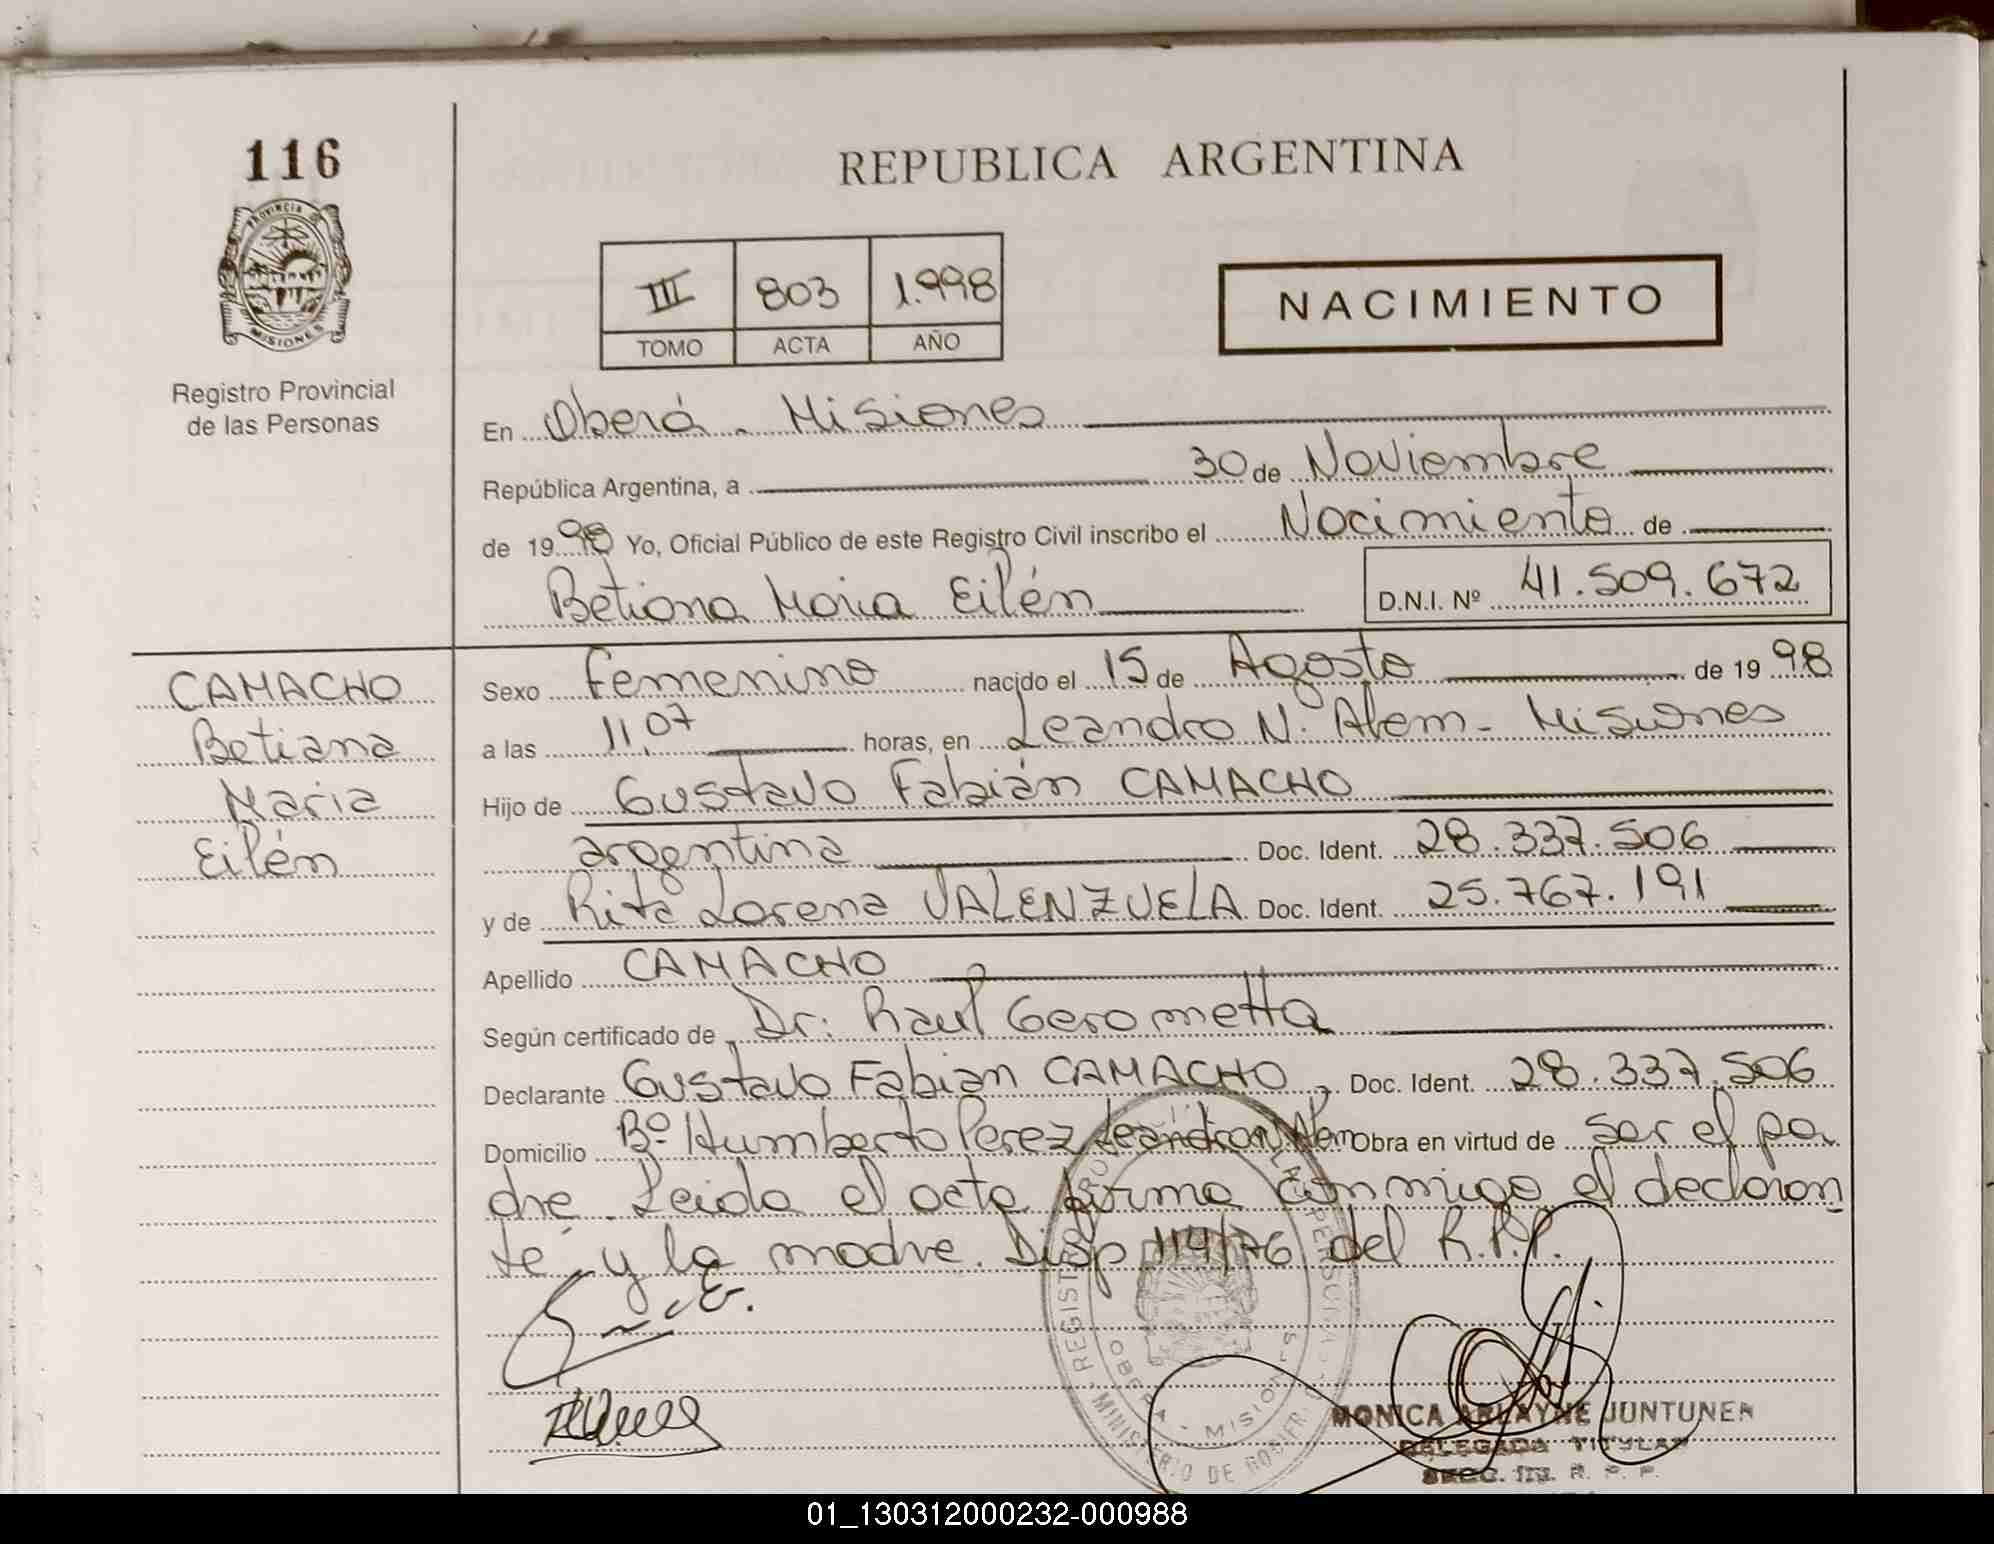 116
REPUBLICA ARGENTINA
PROVINCIA DE
MISIONES
III 803 1.998
TOMO ACTA AÑO
NACIMIENTO
Registro Provincial
de las Personas
En Oberá - Misiones
República Argentina, a 30 de Noviembre
de 1998 Yo, Oficial Público de este Registro Civil inscribo el Nacimiento de
Betiana Maria Eilén D.N.I. Nº 41.509.672
CAMACHO
Betiana
Maria
Eilén
Sexo Femenino nacido el 15 de Agosto de 1998
a las 11,07 horas, en Leandro N. Alem - Misiones
Hijo de Gustavo Fabián CAMACHO
argentina Doc. Ident. 28.337.506
y de Rita Lorena VALENZUELA Doc. Ident. 25.767.191
Apellido CAMACHO
Según certificado de Dr. Raul Gerometta
Declarante Gustavo Fabian CAMACHO, Doc. Ident. 28.337.506
Domicilio Bº Humberto Perez Leandro N Alem Obra en virtud de ser el pa
dre. Leida el acta firma conmigo el declaran
te y la madre. Disp 114/76 del R.P.P.
MONICA ARLAYNE JUNTUNEN
DELEGADA TITULAR
SECC. R. P. P.
OBERA - MISIONES
01_130312000232-000988